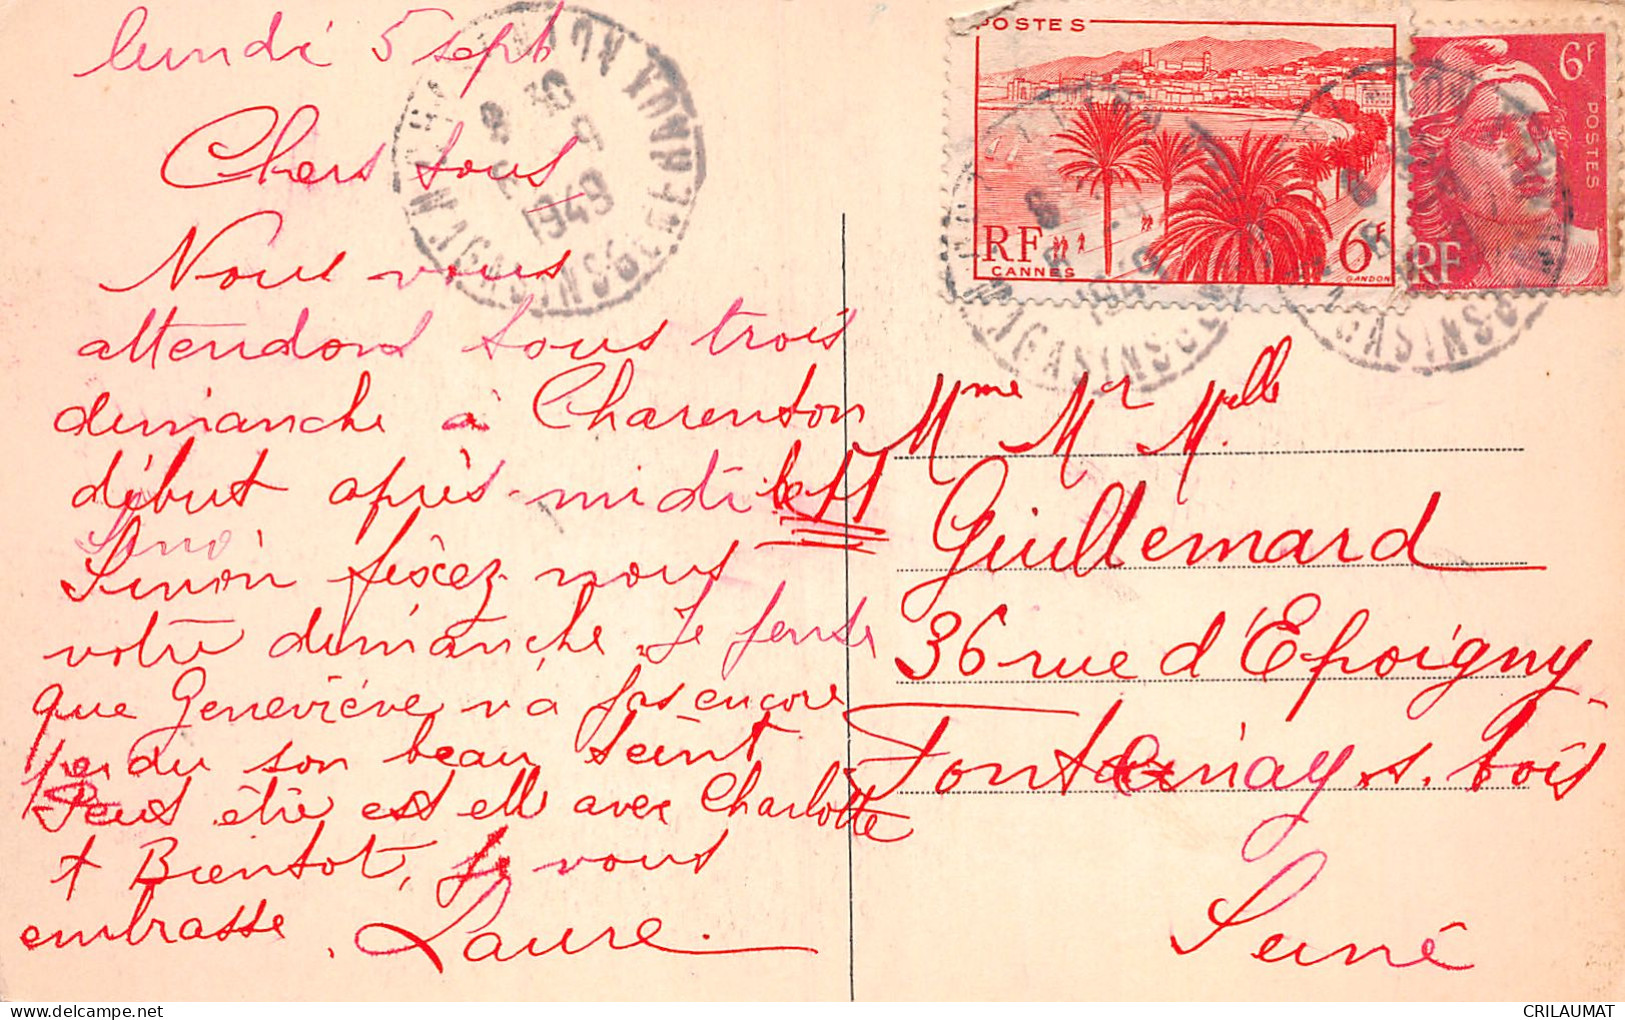 lundi 5 sept
Chers tous
Nous vous
attendons tous trois
dimanche à Charenton
début après-midi le 11
Sinon fixez-nous
votre dimanche. Je pense
que Geneviève n'a pas encore
perdu son beau teint
Peut être est elle avec Charlotte
A Bientôt, je vous
embrasse. Laure.
POSTES
RF
CANNES
6F
GANDON
6F
POSTES
RF
1949
Mme Mr Melle
Guillemard
36 rue d'Epoigny
Fontenay s. bois
Seine
CRILAUMAT